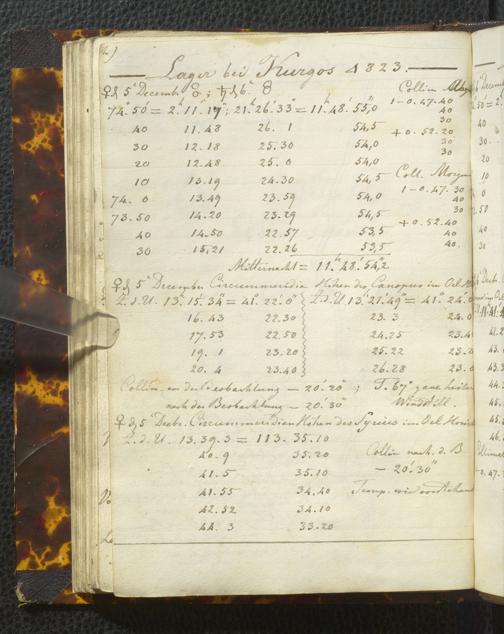 Lager bei Kurgos 1823.
♀ d. 5 Decemb ☉; ♄ d 6 ☉ Collim Abend
74°. 50' = 2h. 11'. 17"; 21h. 26'. 33" = 11h. 48'. 55",0 1 - 0. 47. 40
40 11.48 26. 1 54,5 40
30
30 12.18 25.30 54,0 + 0. 52. 20
30
20 12.48 25. 0 54,0 30
10 13.19 24.30 54,5 Coll. Morgen
74. 0 13.49 23.59 54,0 1 - 0. 47. 30
40
73.50 14.20 23.29 54,5 30
40 14.50 22.57 53,5 + 0. 52. 40
40
30 15.21 22.26 53,5 40.
Mitternacht = 11h. 48'. 54",2
♀ d. 5 December Circummeridian Höhen des Canopus im Oel H
Z. d. U. 13. 15. 34 = 41°. 22'. 0" Z. d. U 13. 21. 49 = 41° 24'. 0
16.43 22.30 23. 3 24.0
17.53 22.50 24.25 23.4
19. 1 23.20 25.22 23.2
20. 4 23.40 26.28 23.0
Collim. vor der Beobachtung - 20'. 20"; T. 67° ganz heiter
nach der Beobachtung - 20'. 30" Windstill.
♀ d. 5 Decbr. Circummeridian Höhen des Syrius im Oel Horiz
Z. d. U. 13. 39. 3 = 113. 35. 10
40. 9 35.20 Collim nach. d. B.
41. 5 35.10 - 20'. 30"
41.55 34.40 Temp. wie vorstehend
42.52 34.10
44. 3 33.20